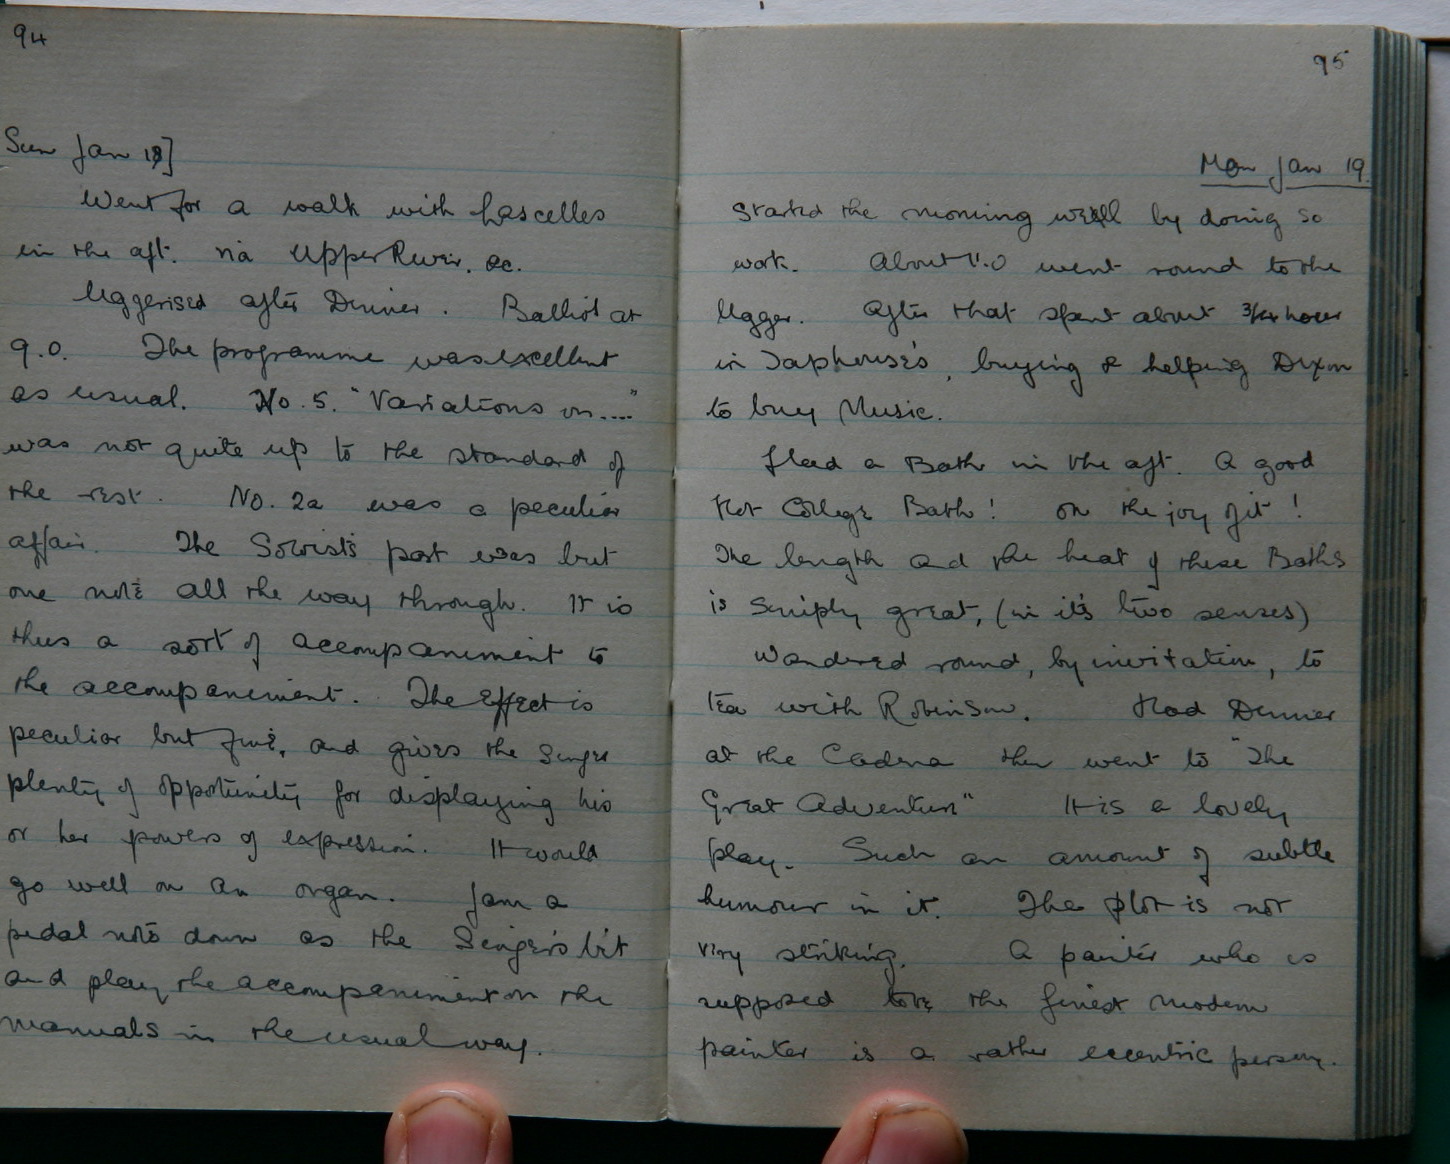 94
Sun Jan 18]
Went for a walk with Lascelles
in the aft. via Upper River. &c.
Uggerised after Dinner. Balliol at
9.0. The programme was excellent
as usual. No. 5. "Variations on...."
was not quite up to the standard of
the rest. No. 2a was a peculiar
affair. The Soloist's part was but
one note all the way through. It is
thus a sort of accompaniment to
the accompaniment. The Effect is
peculiar but fine, and gives the singer
plenty of opportunity for displaying his
or her powers of expression. It would
go well on an organ. Jam a
pedal note down as the Singer's bit
and play the accompaniment on the
manuals in the usual way.
95
Mon Jan 19.
Started the morning well by doing so
work. About 1.0 went round to the
Ugger. After that spent about 3/4 hour
in Taphouse's, buying & helping Dixon
to buy Music.
Had a Bath in the aft. A good
Hot College Bath! Oh the joy of it!
The length and the heat of these Baths
is simply great, (in it's two senses)
Wandered round, by invitation, to
tea with Robinson. Had Dinner
at the Cadena then went to "The
Great Adventure" It is a lovely
play. Such an amount of subtle
humour in it. The plot is not
very striking. A painter who is
supposed to be the finest modern
painter is a rather eccentric person.